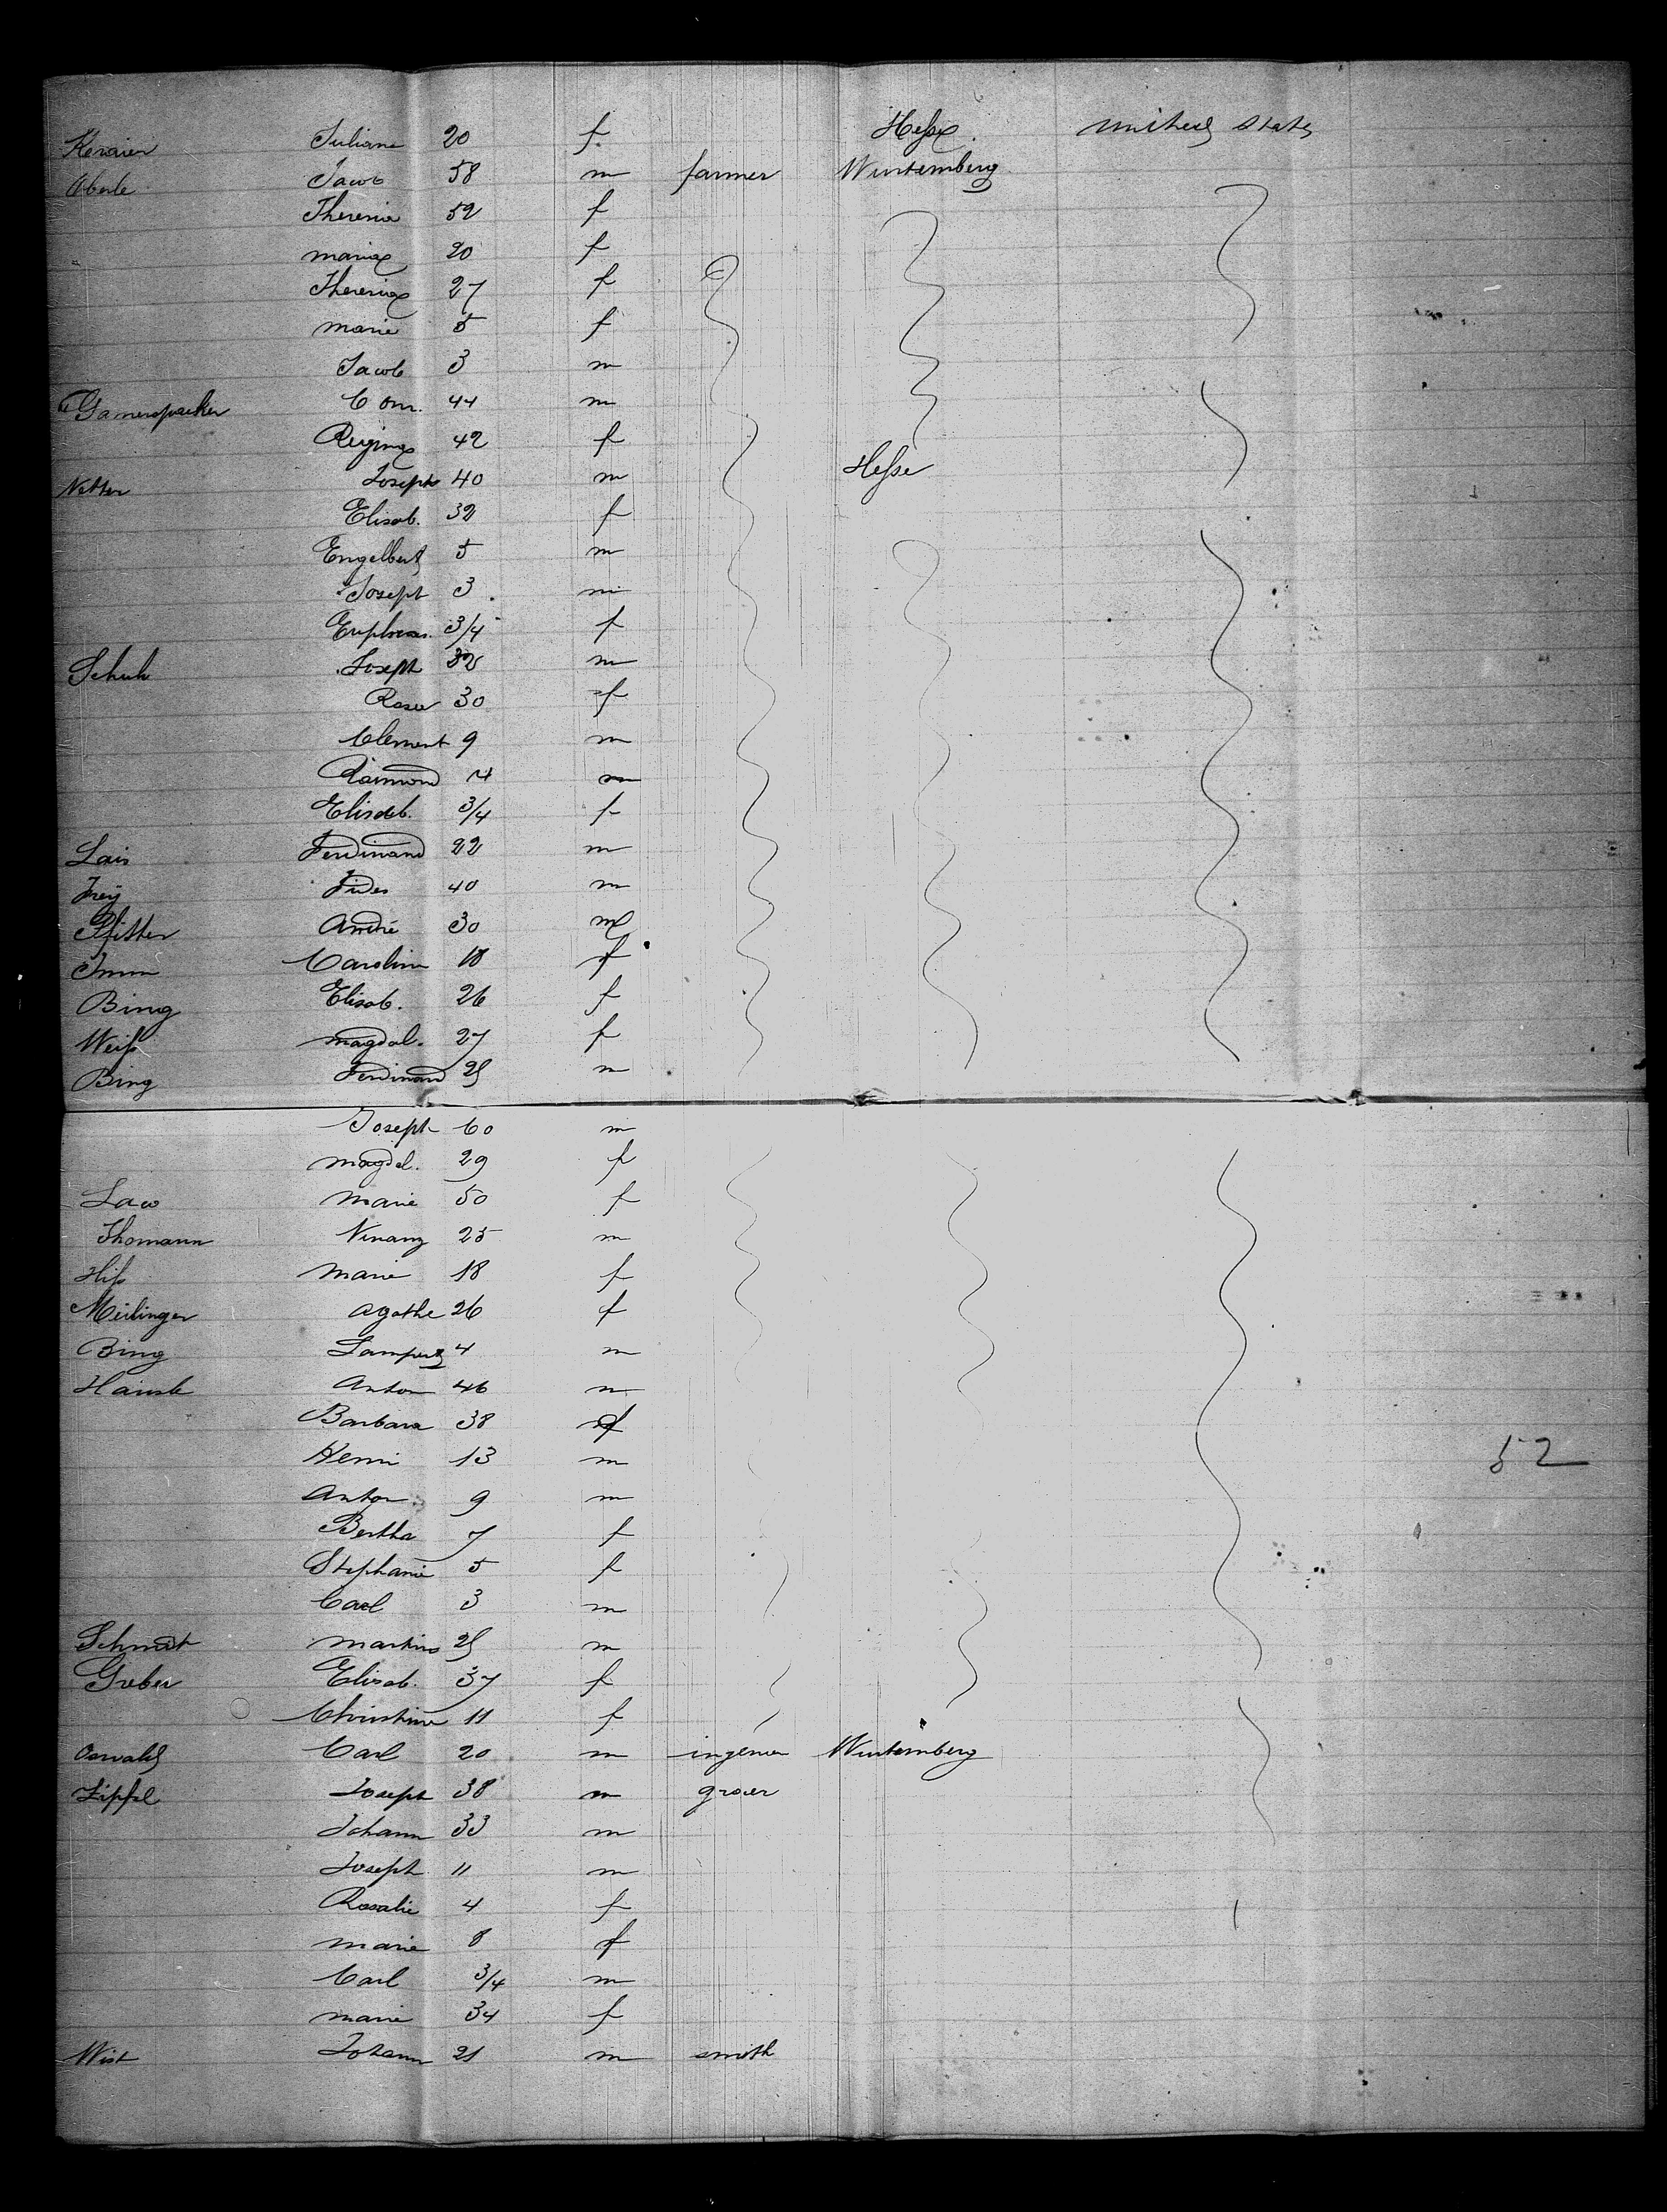 Juliane 20 f. Hesse. United States
Oberle Jacob 58 m farmer Wurtemberg
Theresia 52 f
maria 20 f
Theresia 27 f
marie 5 f
Jacob 3 m
Conr. 44 m
Regina 42 f
Netter Joseph 40 m Hesse
Elisab. 32 f
Engelbert 5 m
Joseph 3 m
3/4 f
Schuh Joseph 32 m
Rosa 30 f
Clement 9 m
Raimond 4 m
Elisab. 3/4 f
Lais Ferdinand 22 m
Frey Fides 40 m
Pfitter André 30 m
Imm Carolina 18 f
Bing Elisab. 26 f
Weiss magdal. 27 f
Bing Ferdinand 25 m
Joseph 60 m
magdal. 29 f
Law marie 50 f
Thomann 25 m
Hiss marie 18 f
Meilinger agathe 26 f
Bing Lampert 4 m
Anton 46 m
Barbara 38 f
Henri 13 m
Anton 9 m
Bertha 7 f
Stephanie 5 f
Carl 3 m
52
Schmidt martin 25 m
Greber Elisab. 37 f
Christine 11 f
Oswald Carl 20 m Wurtemberg
Zipfel Joseph 38 m grocer
Johann 33 m
Joseph 11 m
Rosalie 4 f
marie 8 f
Carl 3/4 m
marie 34 f
Wist Johann 21 m smith